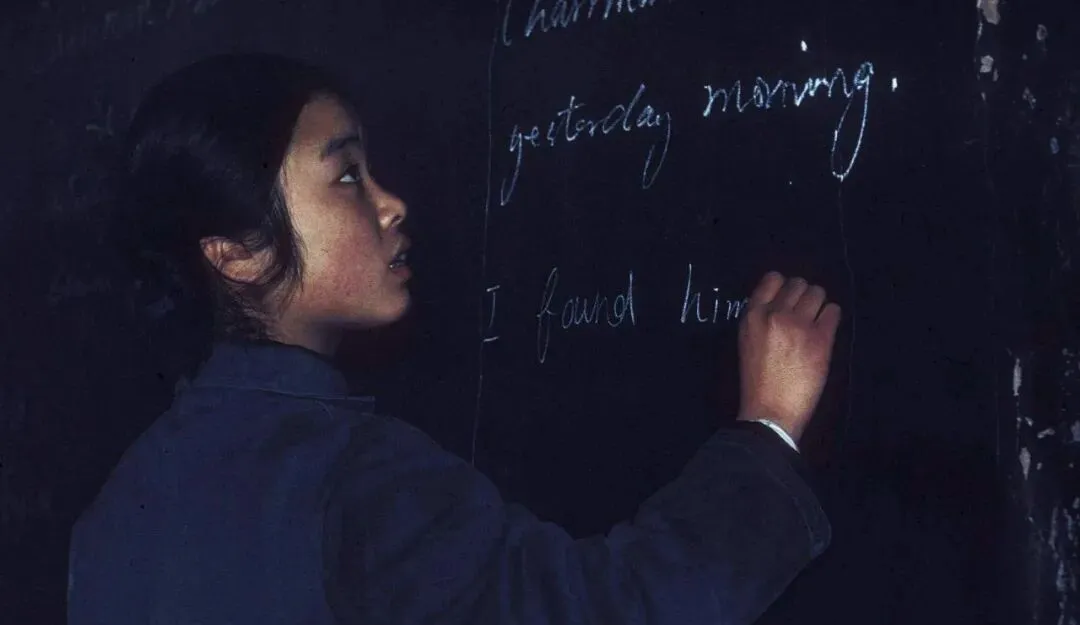 Chairman
yesterday morning.
I found him